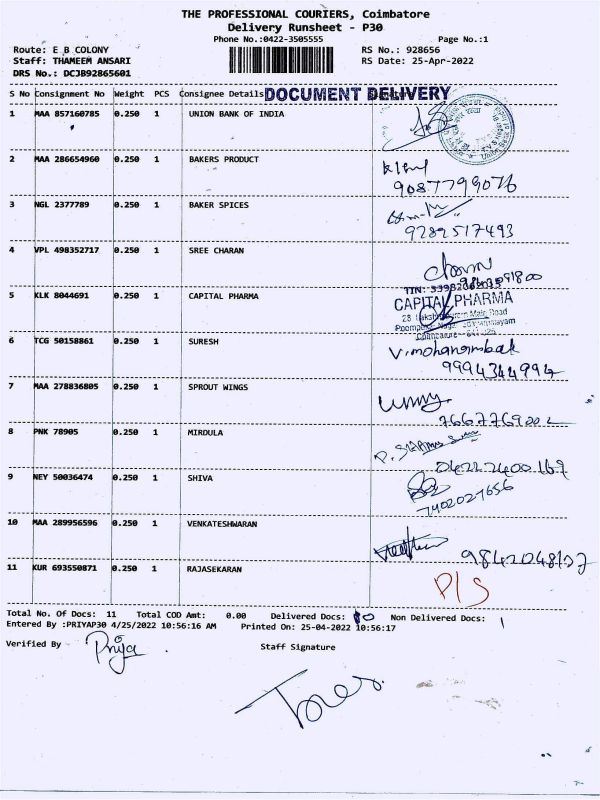 THE PROFESSIONAL COURIERS, Coimbatore
Delivery Runsheet - P30
Phone No.:0422-3505555 Page No.:1
Route: E B COLONY RS No.: 928656
Staff: THAMEEM ANSARI RS Date: 25-Apr-2022
DRS No.: DCJB92865601
S No Consignment No Weight PCS Consignee Details DOCUMENT DELIVERY
1 MAA 857160785 0.250 1 UNION BANK OF INDIA
2 MAA 286654960 0.250 1 BAKERS PRODUCT
9087799076
3 NGL 2377789 0.250 1 BAKER SPICES
9282517493
4 VPL 498352717 0.250 1 SREE CHARAN
5 KLK 8044691 0.250 1 CAPITAL PHARMA CAPITAL PHARMA
6 TCG 50158861 0.250 1 SURESH
9994344994
7 MAA 278836805 0.250 1 SPROUT WINGS
8 PNK 78905 0.250 1 MIRDULA
9 NEY 50036474 0.250 1 SHIVA
7402027656
10 MAA 289956596 0.250 1 VENKATESHWARAN
11 KUR 693550871 0.250 1 RAJASEKARAN
P/S
Total No. Of Docs: 11 Total COD Amt: 0.00 Delivered Docs: 10 Non Delivered Docs: 1
Entered By :PRIYAP30 4/25/2022 10:56:16 AM Printed On: 25-04-2022 10:56:17
Verified By Priya Staff Signature